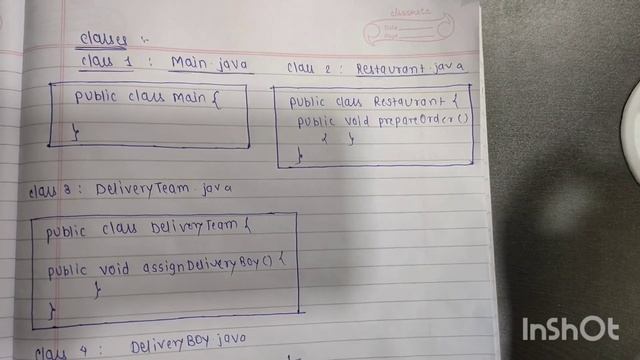 classmate
Date
Page
classes :-
class 1 : Main.java
class 2 : Restaurant.java
public class main {
}
public class Restaurant {
public void prepareOrder()
{ }
}
class 3 : DeliveryTeam.java
public class DeliveryTeam {
public void assignDeliveryBoy() {
}
}
class 4 : DeliveryBoy.java
InShOt